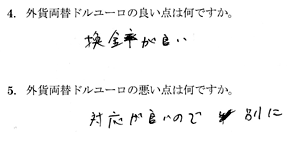 4. 外貨両替ドルユーロの良い点は何ですか。
換金率が良い
5. 外貨両替ドルユーロの悪い点は何ですか。
対応が良いので 別に